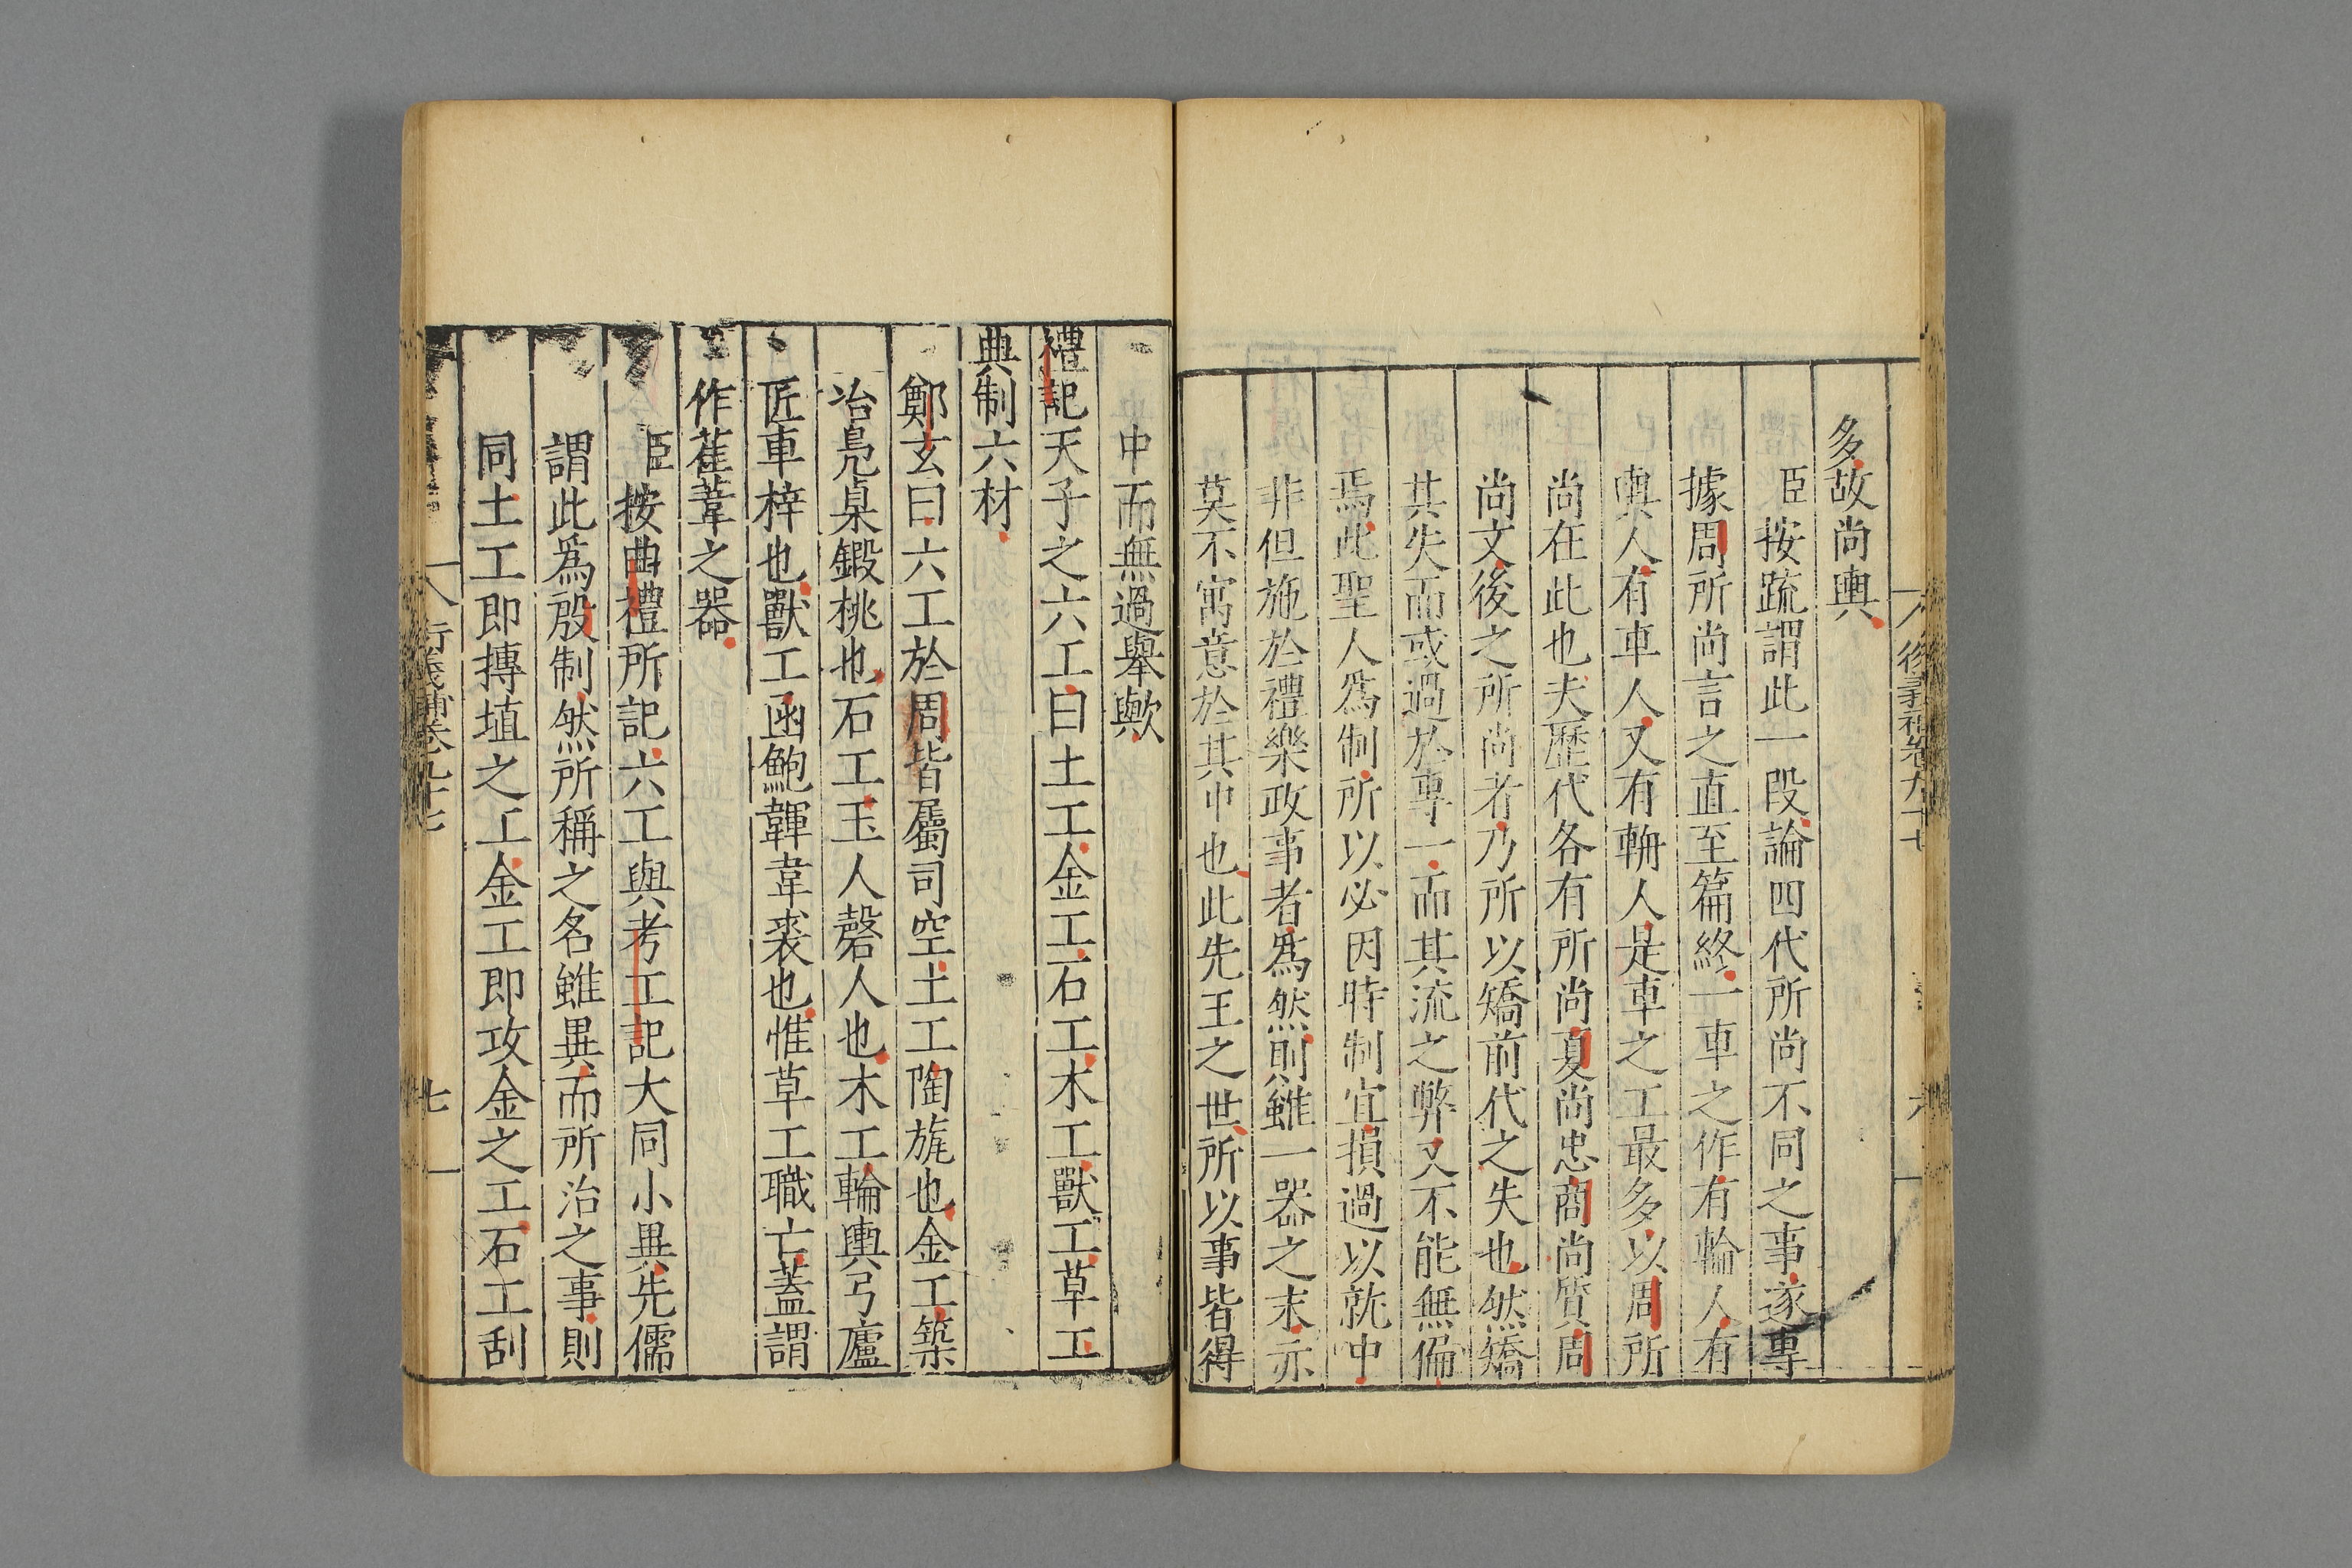 多故尚輿
臣按䟽謂此一段論四代所尚不同之事遂專
據周所尚言之直至篇終一車之作有輪人有
輿人有車人又有輈人是車之工最多以周所
尚在此也夫歷代各有所尚夏尚忠商尚質周
尚文後之所尚者乃所以矯前代之失也然矯
其失而或過於專一而其流之弊又不能無偏
焉此聖人爲制所以必因時制宜損過以就中
非但施於禮樂政事者爲然則雖一器之末亦
莫不寓意於其中也此先王之世所以事皆得
中而無過舉歟
禮記天子之六工曰土工金工石工木工獸工草工
典制六材
鄭玄曰六工於周皆屬司空土工陶旊也金工築
冶鳧㮚鍛桃也石工玉人磬人也木工輪輿弓廬
匠車梓也獸工函鮑韗韋裘也惟草工職亡蓋謂
作萑葦之器
臣按曲禮所記六工與考工記大同小異先儒
謂此爲殷制然所稱之名雖異而所治之事則
同土工即摶埴之工金工即攻金之工石工刮
衍義補卷九十七
七